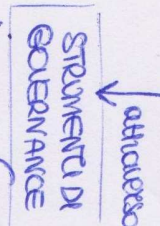 attraverso
STRUMENTI DI
GOVERNANCE